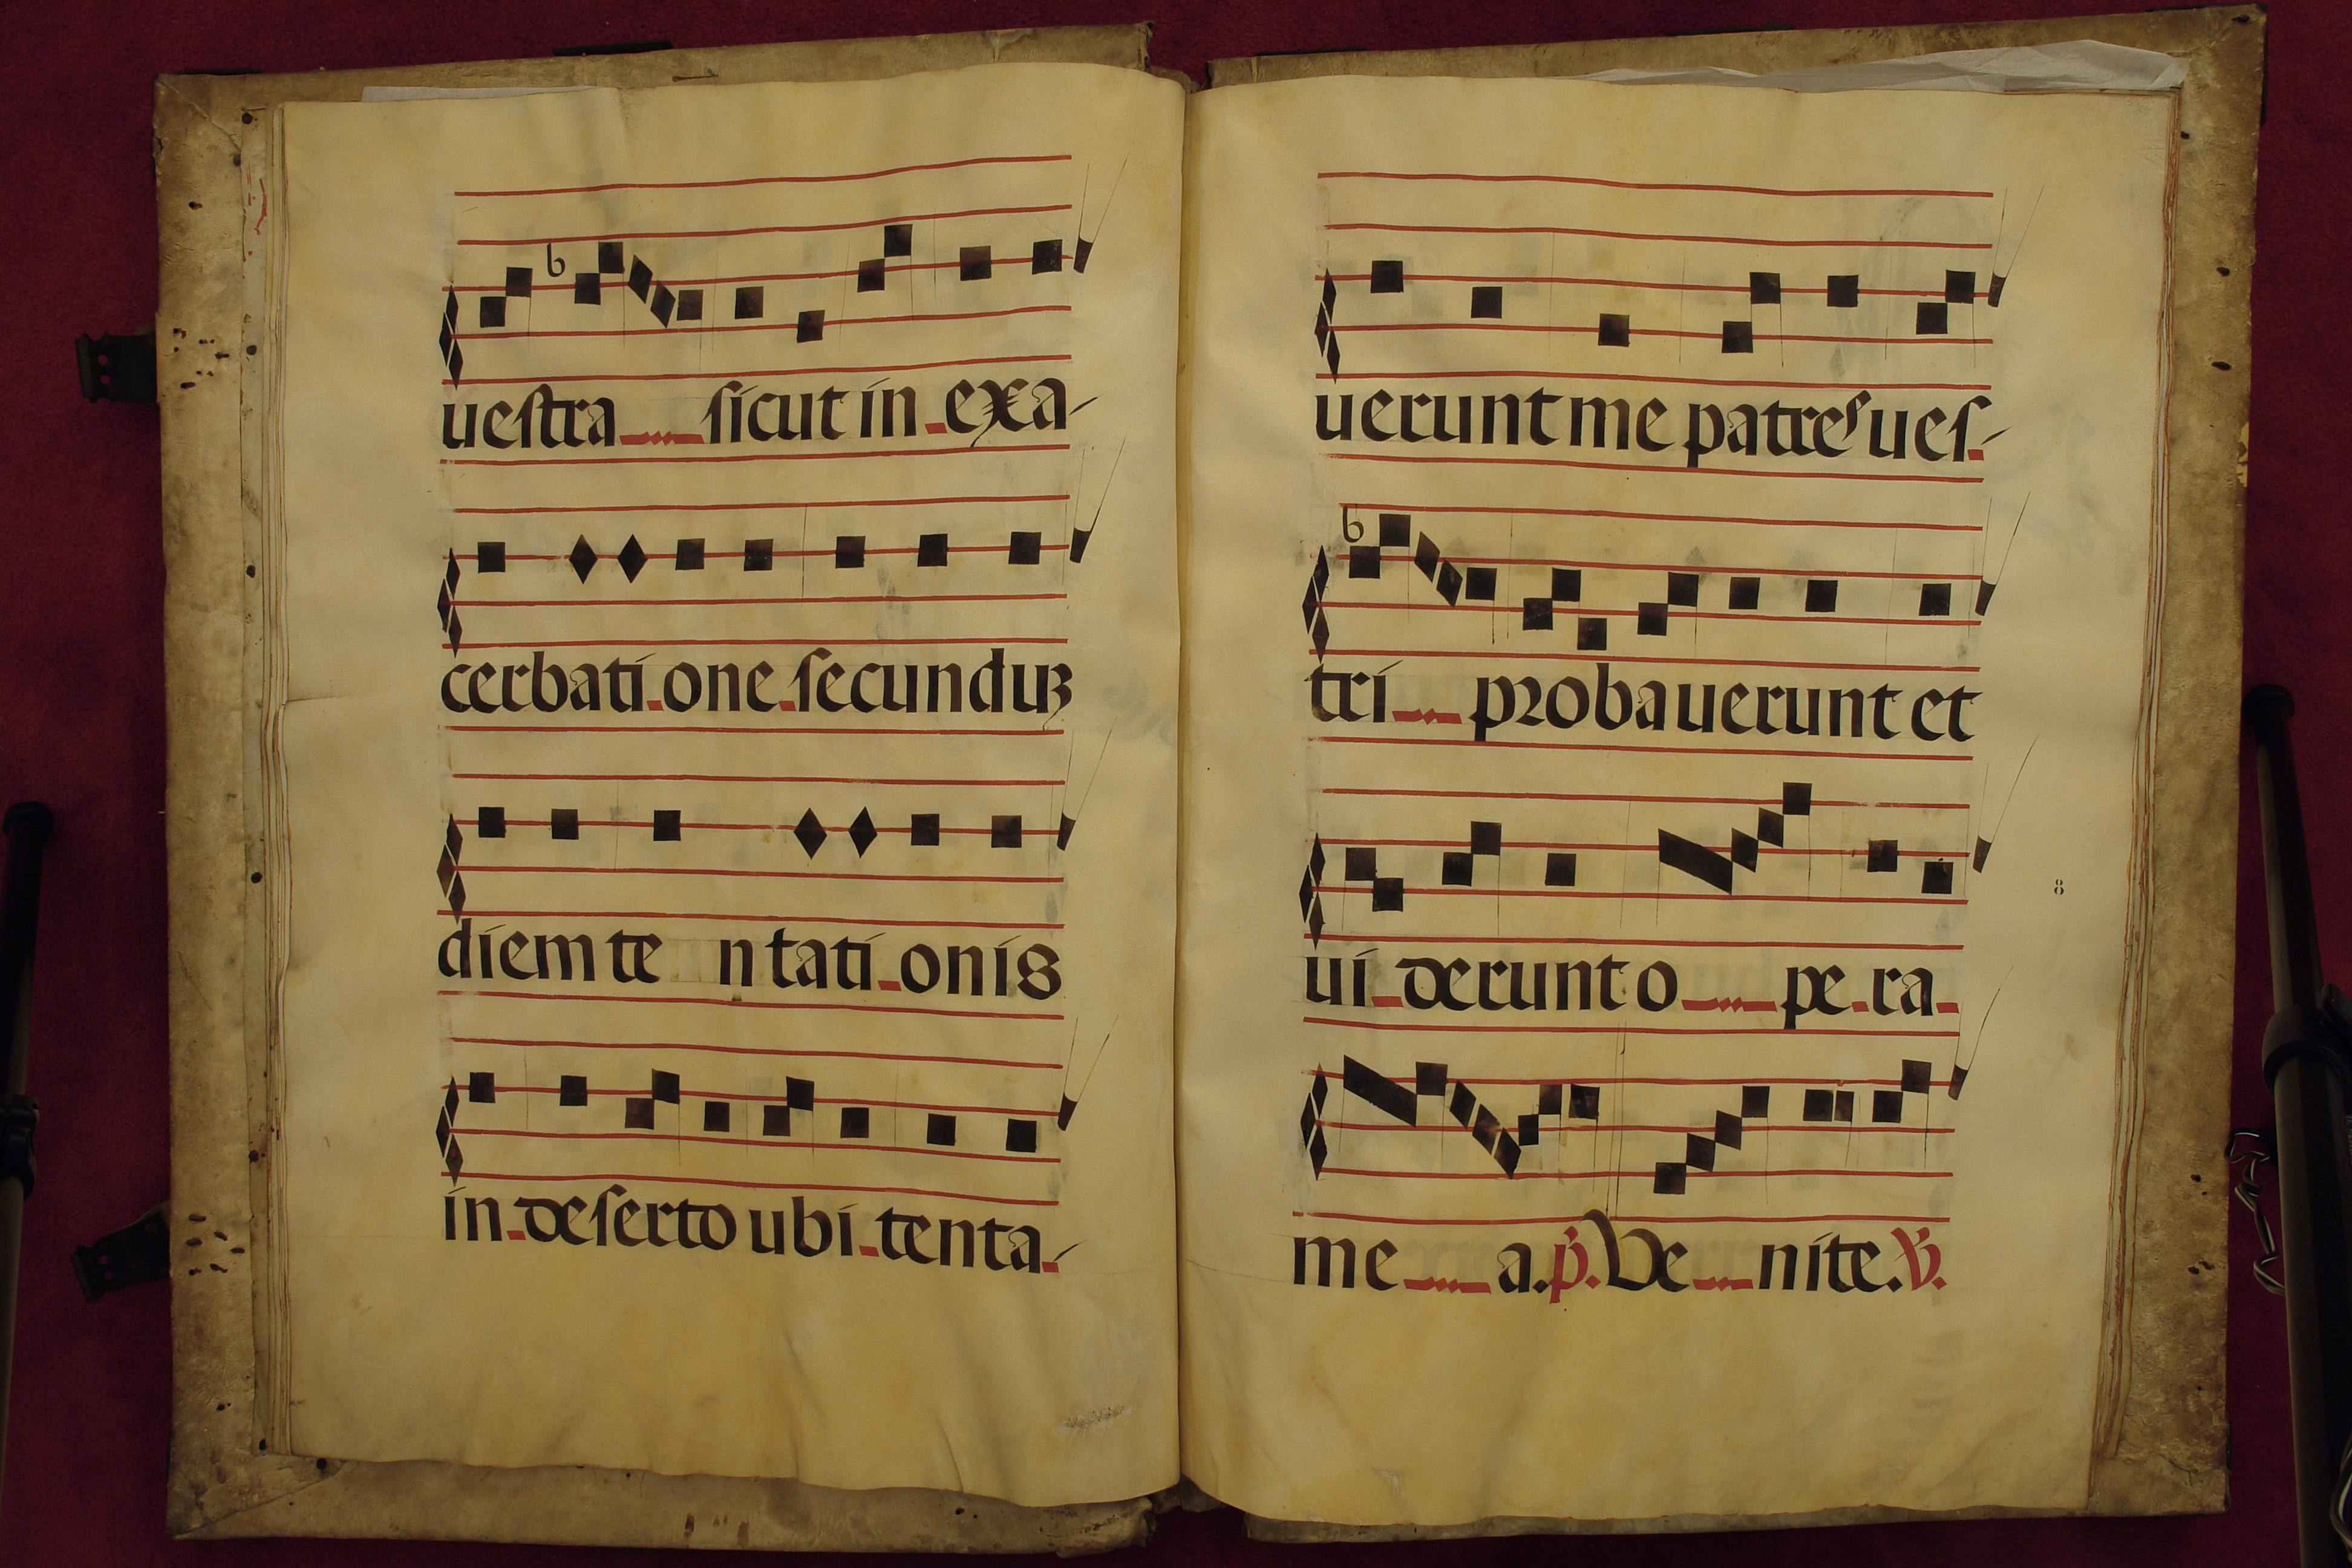 uestra sicut in exa-
cerbatione secunduʒ
diem te ntationis
in deserto ubi tenta-
uerunt me patres ues-
tri probauerunt et
uiderunt opera
mea. p̄. Venite. ℣.
8